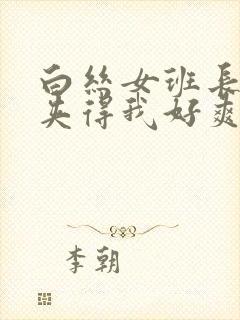 白丝女班长
夹得我好爽
李朝